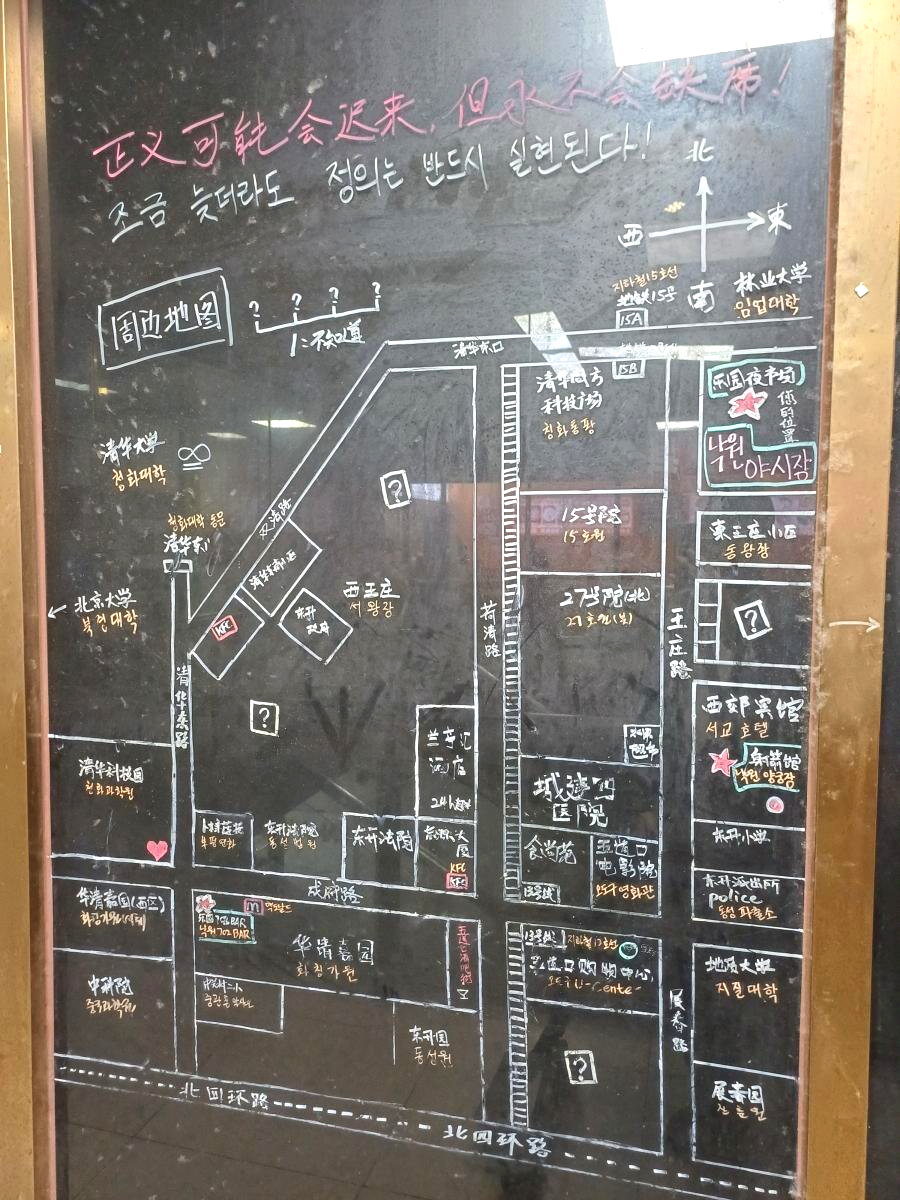 正义可能会迟来，但永不会缺席！
조금 늦더라도 정의는 반드시 실현된다!
北
西 東
南
周边地图
? ? ? ?
1:不知道
지하철15호선
地铁15号
15A
林业大学
임업대학
清华东口
15B
清华同方
科技广场
청화동팡
乐园夜市场
您的位置
낙원
야시장
清华大学
청화대학
?
双清路
15号院
15호원
東王庄小区
동왕장
청화대학 동문
清华东门
西王庄
서왕장
← 北京大学
북경대학
KFC
东升
荷清路
27号院(北)
27호원(북)
王庄路
?
清华东路
?
西郊宾馆
서교 호텔
射箭馆
낙원 양궁장
清华科技园
兰亭汇
酒店
24h
城建四
医院
东升法院
동성법원
东升法院
KFC
KFC
食尚苑
五道口
电影院
오도구영화관
东升小学
东升派出所
police
동성파출소
成府路
华清嘉园(西区)
乐园702BAR
낙원702BAR
m 맥도날드
华清嘉园
화청가원
13号线
지하철13호선
五道口购物中心
地质大学
지질대학
中科院
중국과학원
东升园
동성원
?
展春路
展春园
北四环路
北四环路